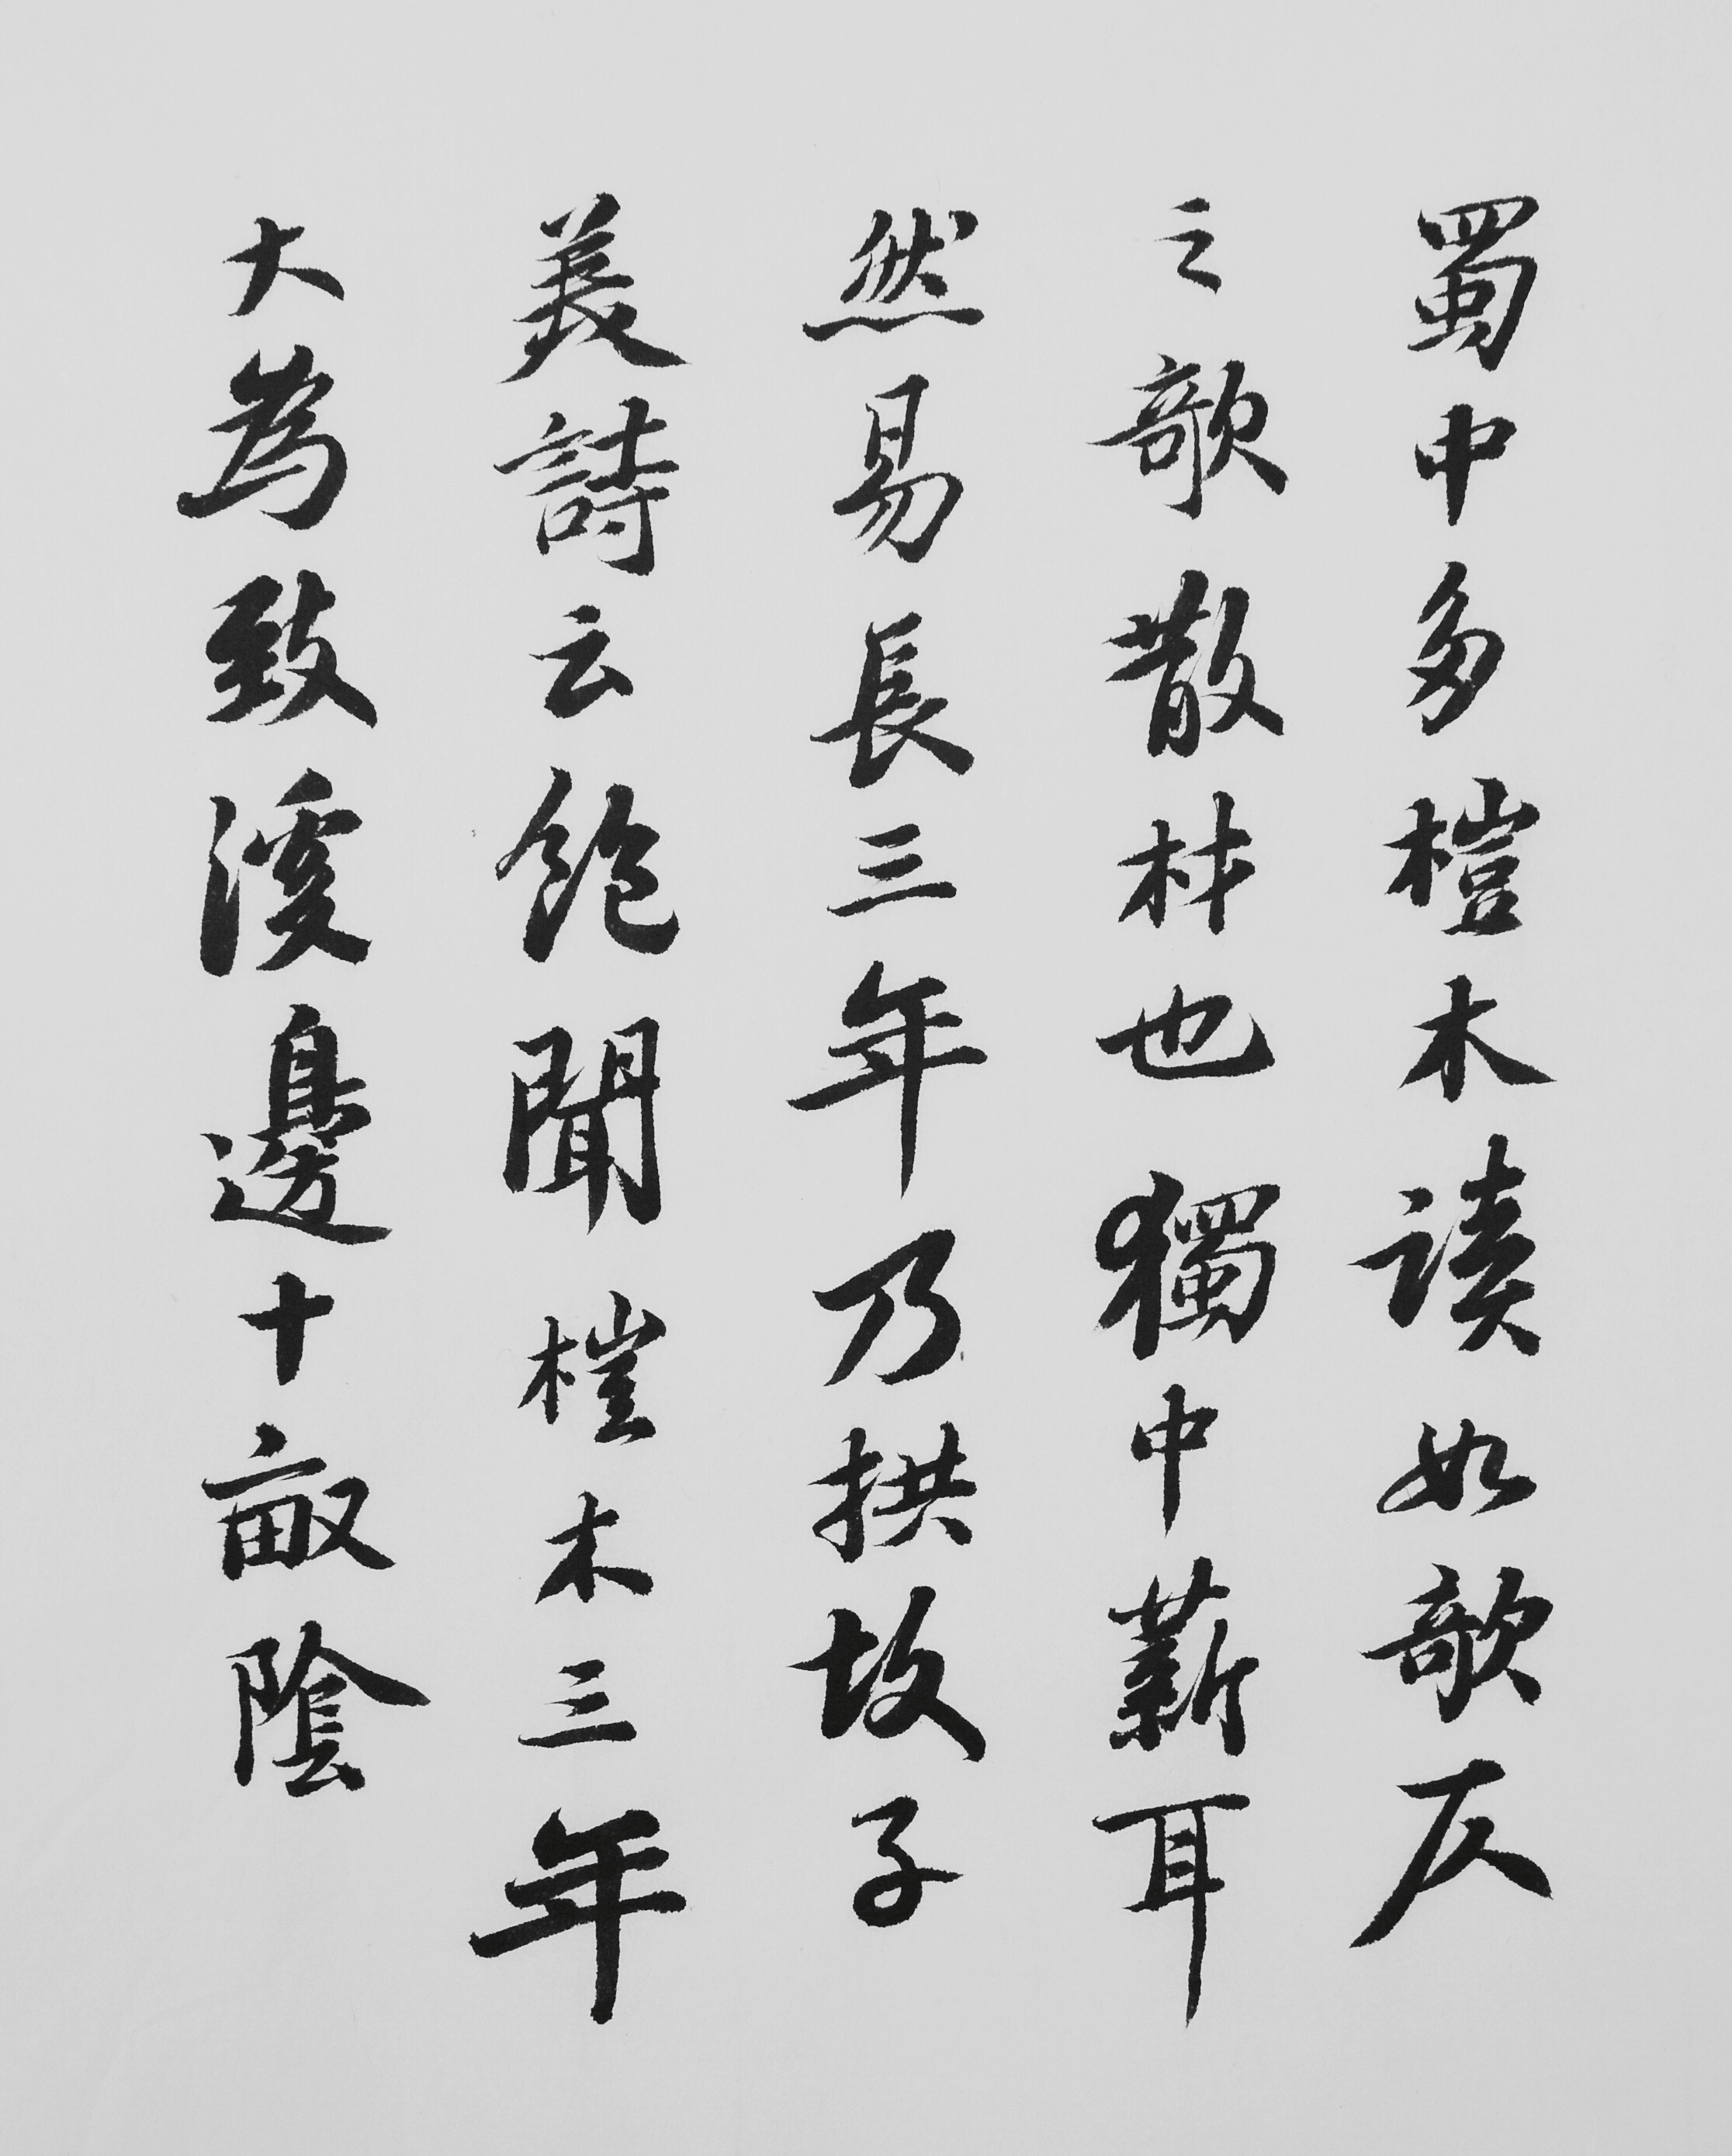 蜀中多榿木读如欹仄
之欹散材也獨中薪耳
然易長三年乃拱故子
美詩云飽聞榿木三年
大為致溪邊十畝陰